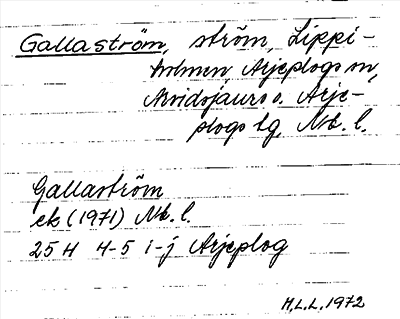 Gallaström, ström, Lippi-
holmen, Arjeplogs sn,
Arvidsjaurs o. Arje-
plogs tg Nb. l.
Gallaström
ek (1971) Nb. l.
25 H 4-5 i-j Arjeplog
H.L.L. 1972